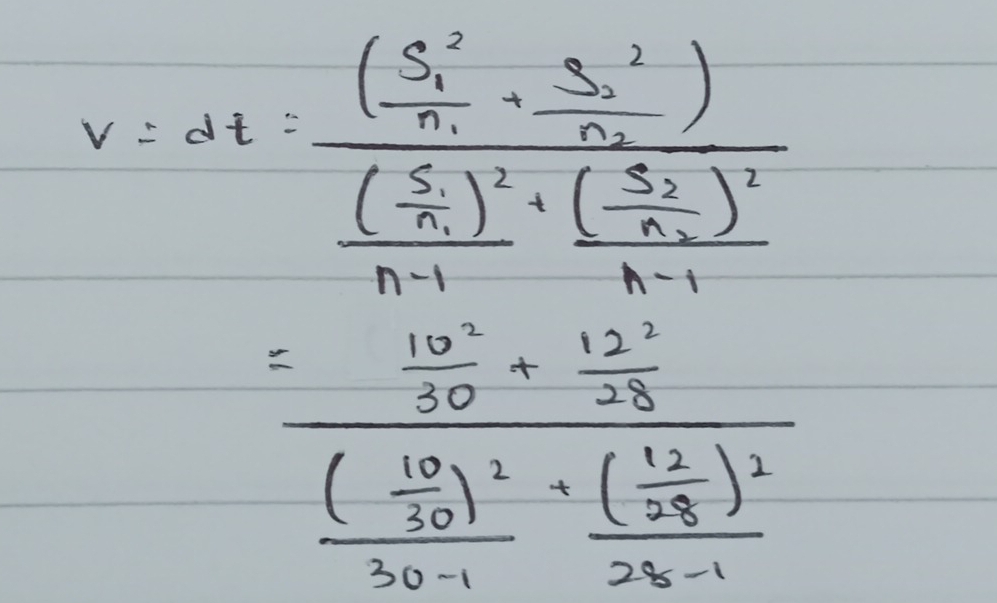 v = dt = (S₁²/n₁ + S₂²/n₂) / ((S₁/n₁)²/(n-1) + (S₂/n₂)²/(n-1))
= (10²/30 + 12²/28) / ((10/30)²/(30-1) + (12/28)²/(28-1))